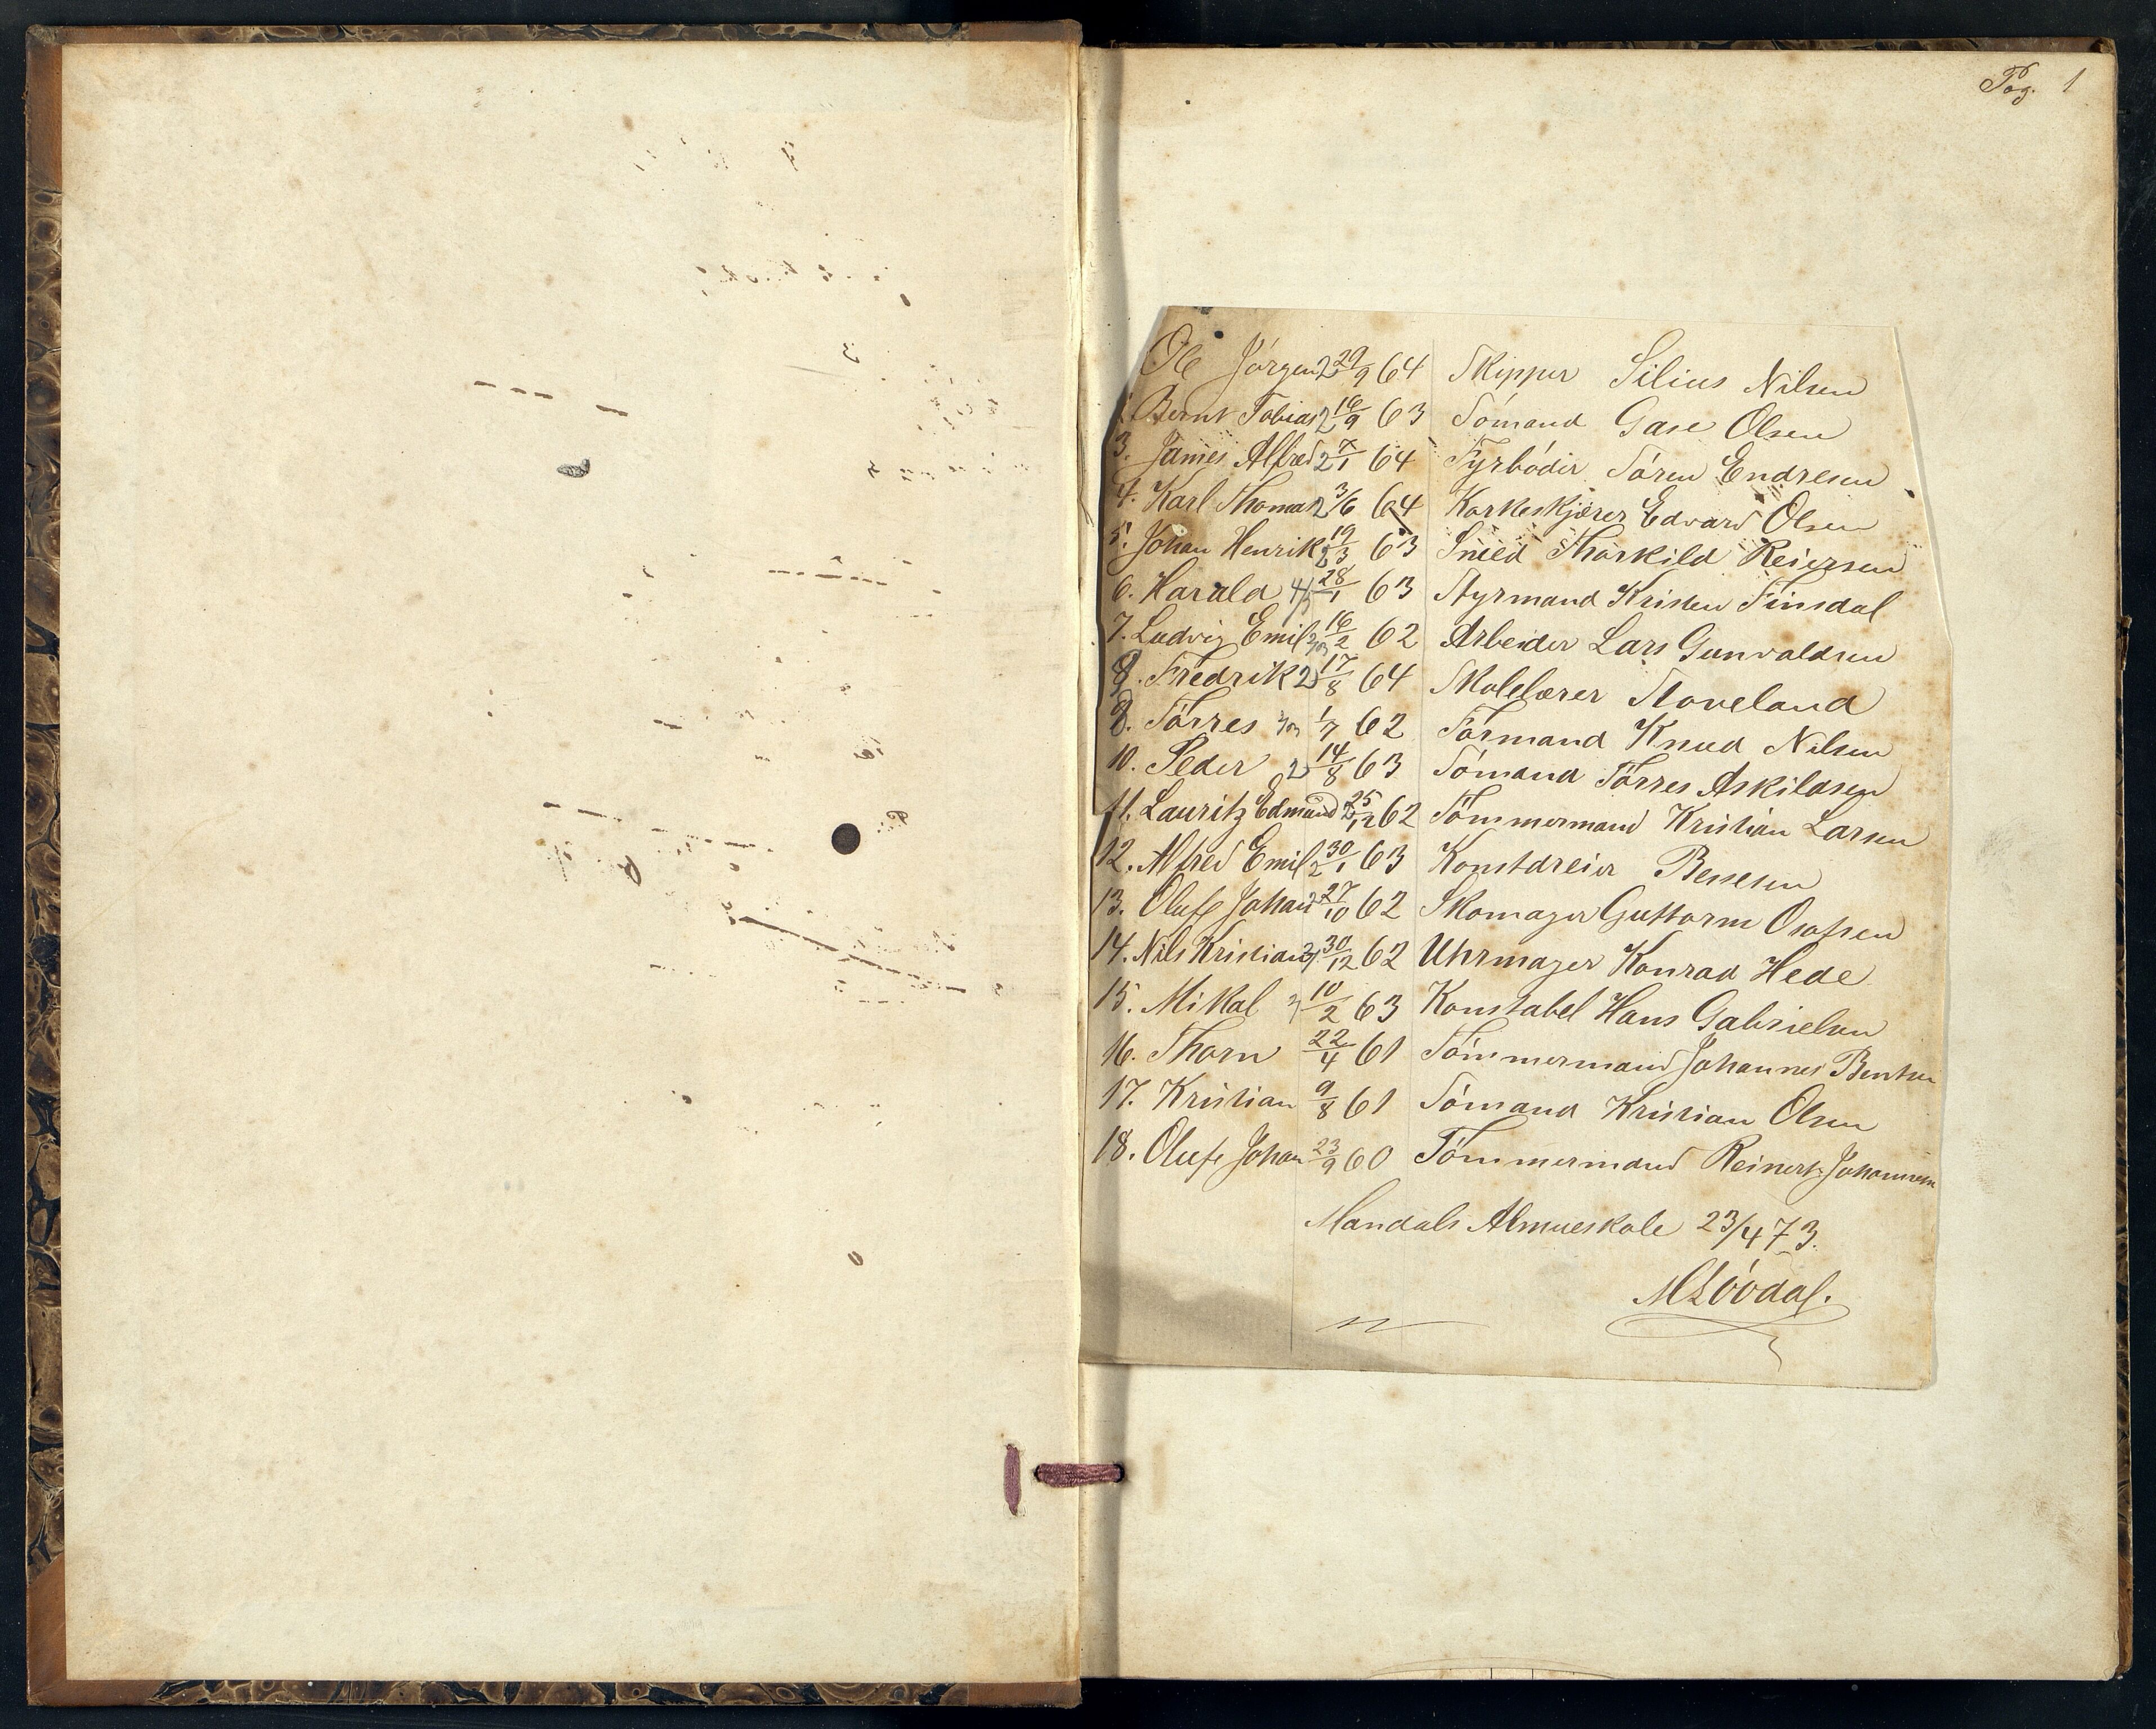 Pag. 1
Ole Jörgen 2 29/9 64 Skipper Silius Nilsen
Bernt Tobias 2 16/9 63 Sömand Gase Olsen
3. James Alfred 2 7/1 64 Fyrböder Sören Endresen
4. Karl Thomas 2 3/6 64 Korkeskjærer Edvard Olsen
5. Johan Henrik 2 19/3 63 Smed Thorkild Reiersen
6. Harald 28/1 63 Styrmand Kristen Finsdal
7. Ludvig Emil 16/2 62 Arbeider Lars Gunvaldsen
8. Fredrik 2 17/8 64 Skolelærer Stoveland
9. Törres 1/7 62 Formand Knud Nilsen
10. Peder 2 14/8 63 Sömand Törres Askildsen
11. Lauritz Edmund 2 25/12 62 Tömmermand Kristian Larsen
12. Alfred Emil 2 30/1 63 Konstdreier Bessesen
13. Oluf Johan 2 27/10 62 Skomager Guttorm Osofsen
14. Nils Kristian 2 30/12 62 Uhrmager Konrad Hede
15. Mikal 2 10/2 63 Konstabel Hans Gabrielsen
16. Thorn 22/4 61 Tömmermand Johannes Bentsen
17. Kristian 9/8 61 Sömand Kristian Olsen
18. Oluf Johan 23/9 60 Tömmermand Reinert Johannesen
Mandals Almueskole 23/4 73.